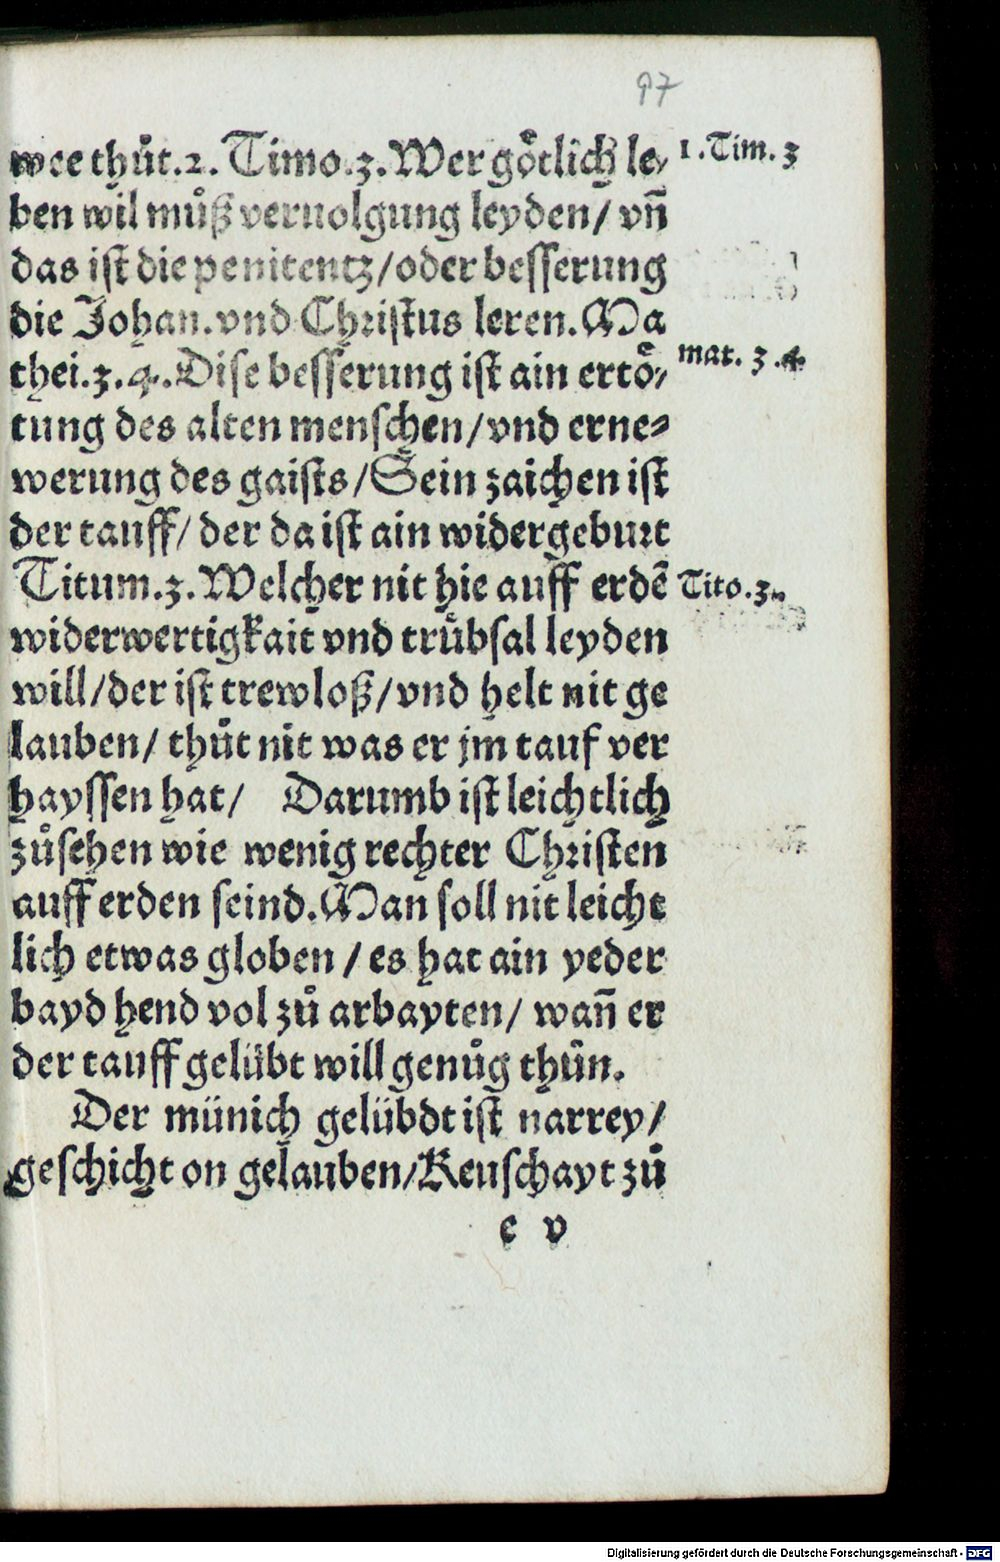 97
wee thůt.2. Timo.3. Wer goͤtlich le⸗ 1. Tim. 3
ben wil můß veruolgung leyden/ vn̄
das ist die penitentz/oder besserung
die Johan.vnd Christus leren. Ma
thei.3.4. Dise besserung ist ain ertoͤ⸗ mat. 3.4.
tung des alten menschen/vnd erne⸗
werung des gaists/Sein zaichen ist
der tauff/ der da ist ain widergeburt
Titum.3. Welcher nit hie auff erdē Tito.3.
widerwertigkait vnd truͤbsal leyden
will/der ist trewloß/vnd helt nit ge
lauben/ thůt nit was er jm tauf ver
hayssen hat/ Darumb ist leichtlich
zůsehen wie wenig rechter Christen
auff erden seind. Man soll nit leicht
lich etwas globen/ es hat ain yeder
bayd hend vol zů arbayten/ wan̄ er
der tauff gelübt will genůg thůn.
Der münich gelübdt ist narrey/
geschicht on gelauben/Keuschayt zů
c v
Digitalisierung gefördert durch die Deutsche Forschungsgemeinschaft - DFG